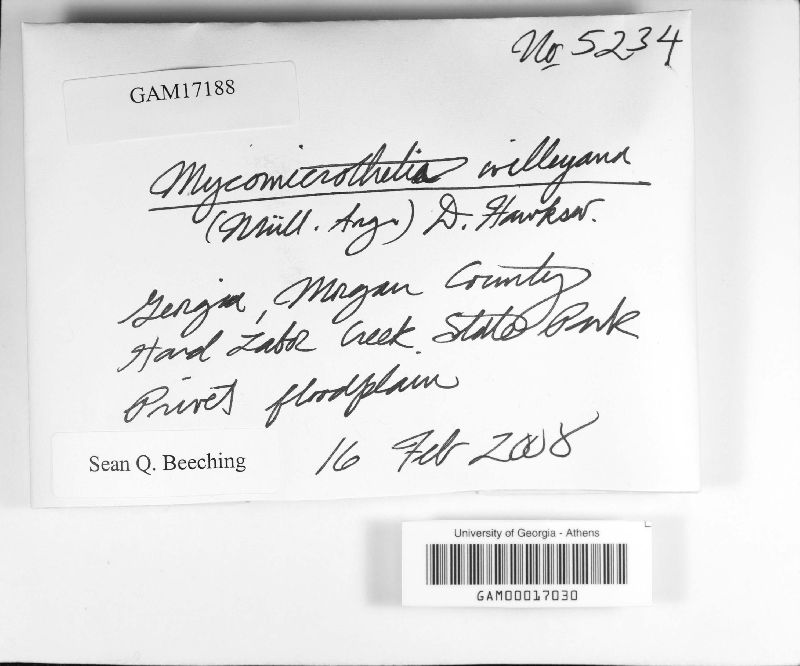 No 5234
GAM17188
Mycomicrothelia willeyana
(Müll. Arg.) D. Hawksw.
Georgia, Morgan County
Hard Labor Creek State Park
Privet floodplain
Sean Q. Beeching
16 Feb 2008
University of Georgia - Athens
GAM00017030